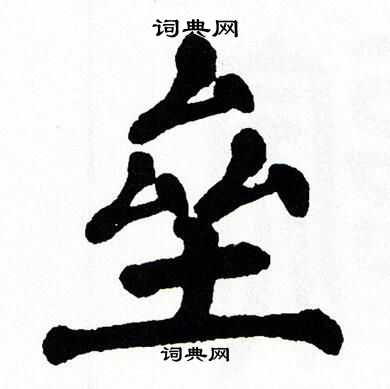 词典网
垒
词典网